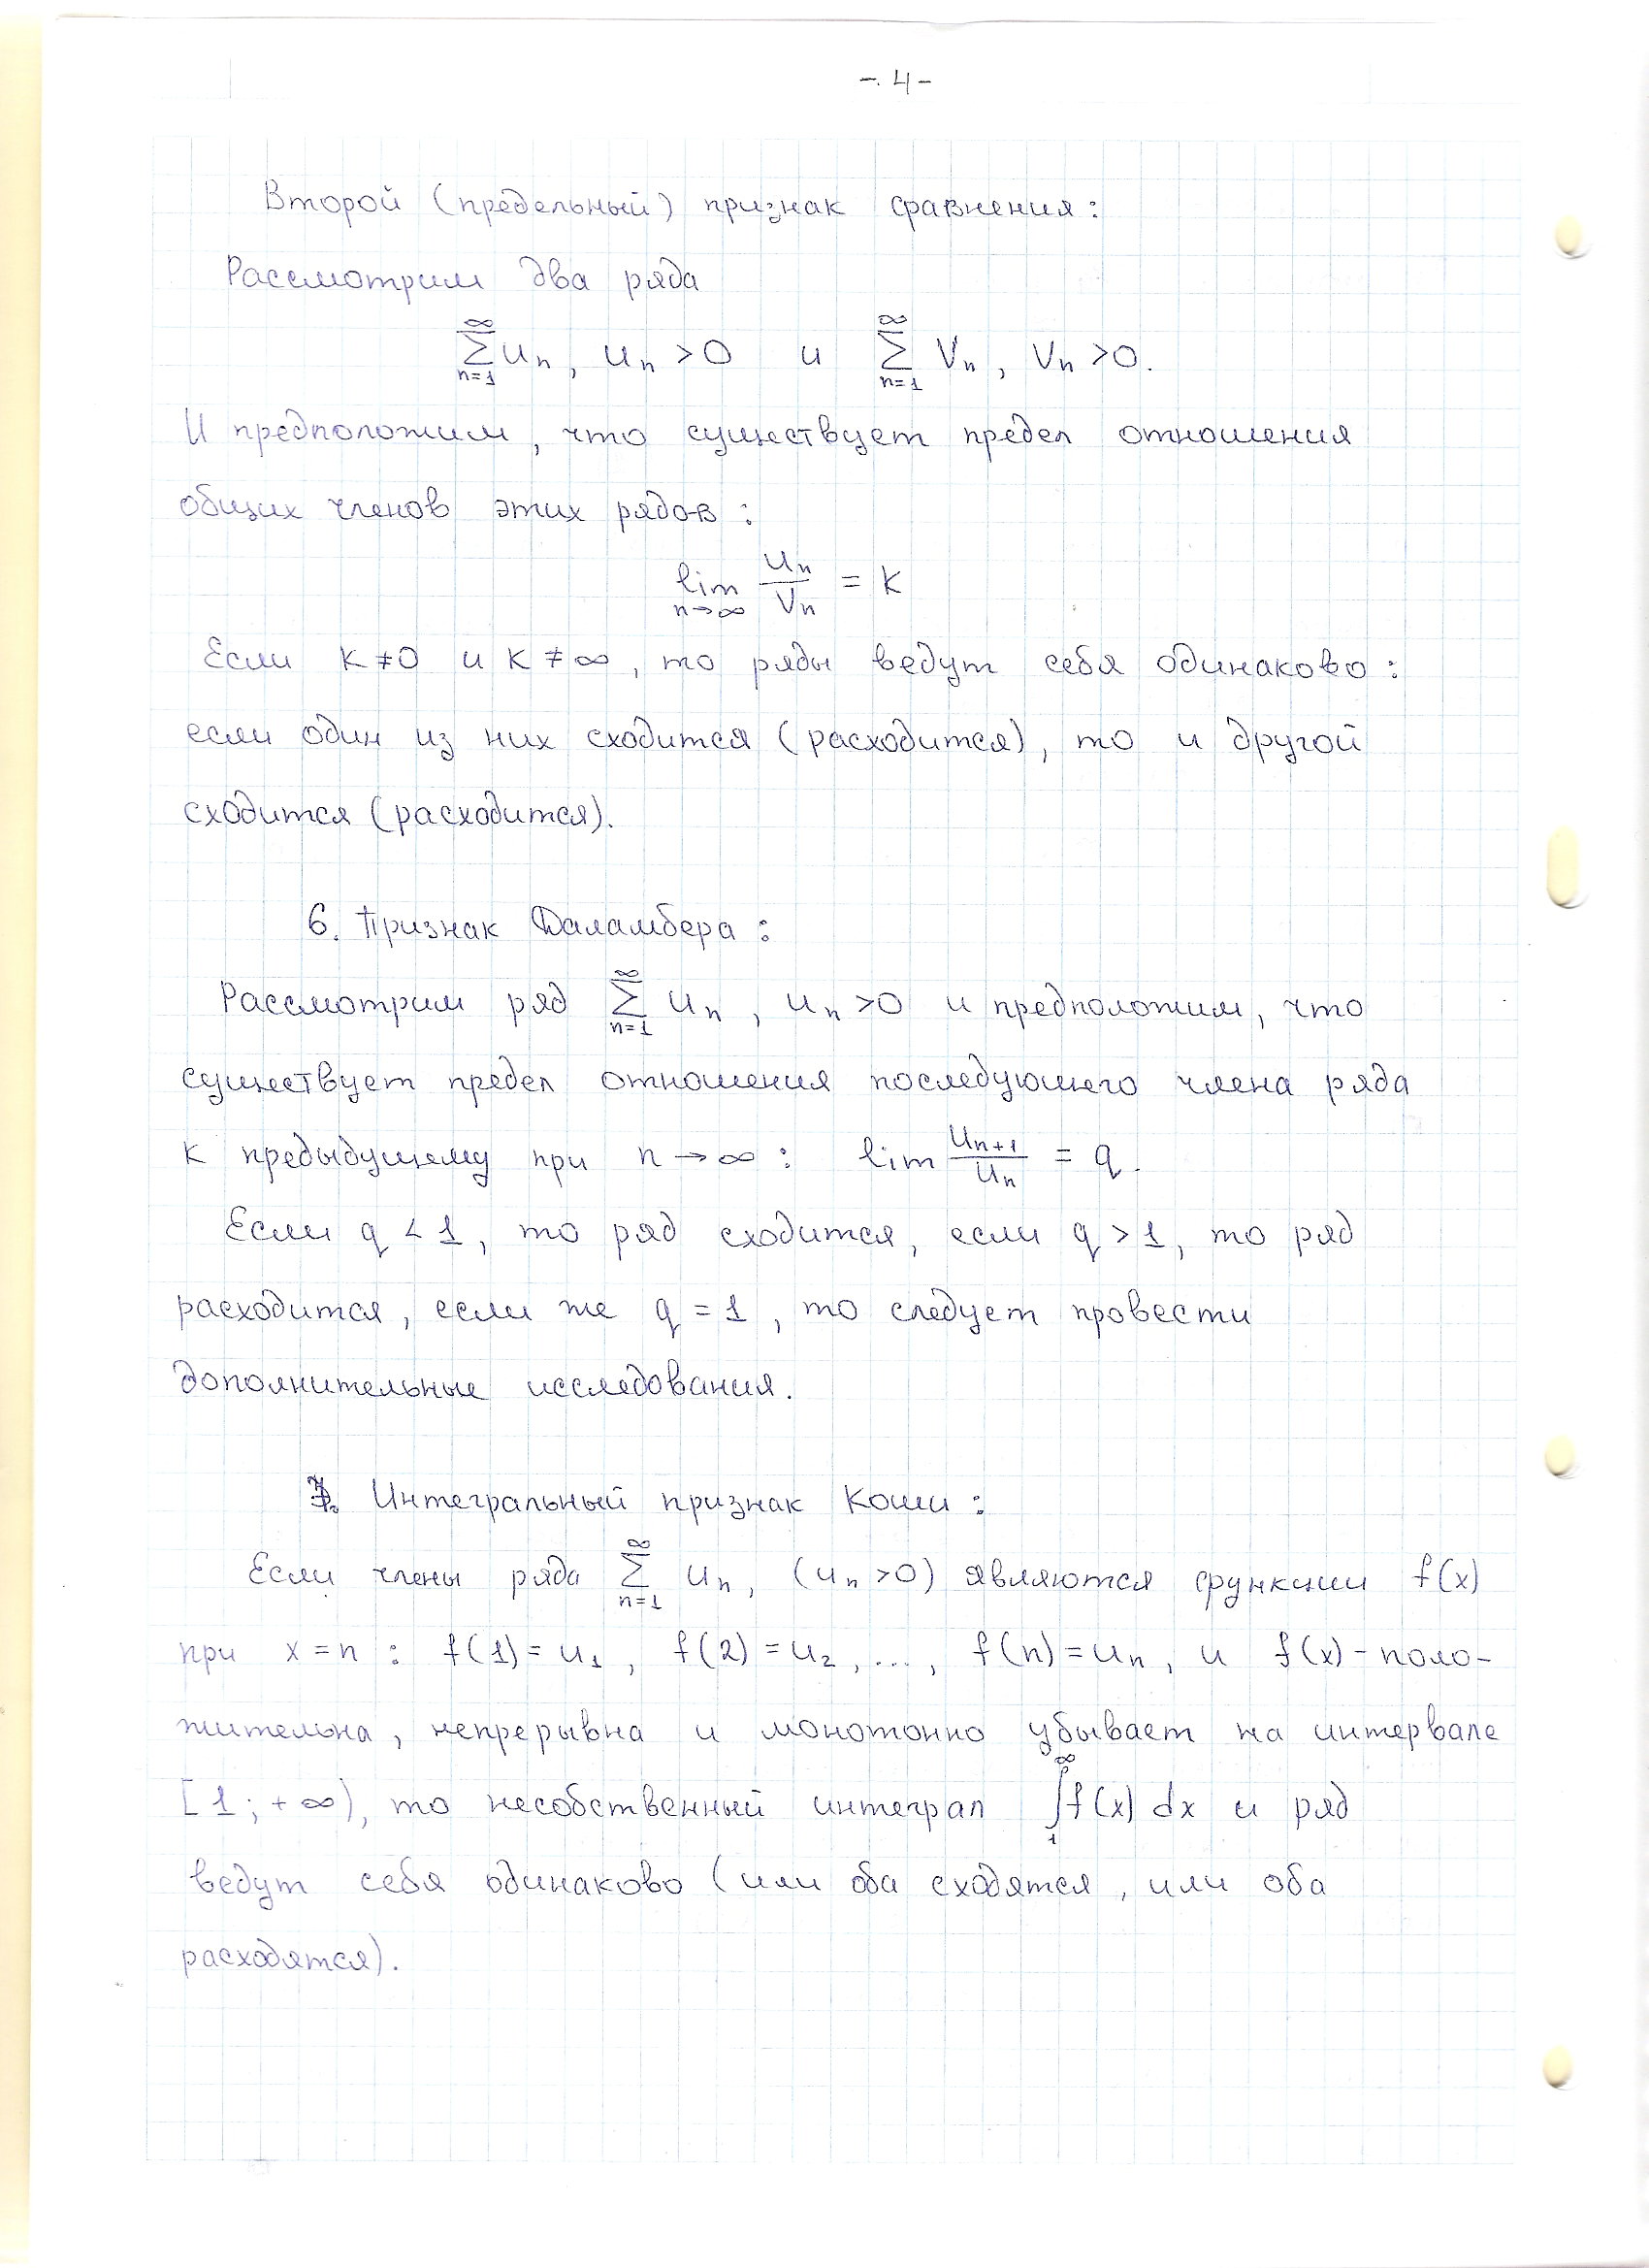 -. 4 -
Второй (предельный) признак сравнения:
Рассмотрим два ряда
∑_{n=1}^{∞} u_n, u_n > 0 и ∑_{n=1}^{∞} V_n, V_n > 0.
И предположим, что существует предел отношения
общих членов этих рядов:
lim_{n→∞} u_n/V_n = K
Если K ≠ 0 и K ≠ ∞, то ряды ведут себя одинаково:
если один из них сходится (расходится), то и другой
сходится (расходится).
6. Признак Даламбера:
Рассмотрим ряд ∑_{n=1}^{∞} u_n, u_n > 0 и предположим, что
существует предел отношения последующего члена ряда
к предыдущему при n → ∞: lim u_{n+1}/u_n = q.
Если q < 1, то ряд сходится, если q > 1, то ряд
расходится, если же q = 1, то следует провести
дополнительные исследования.
7. Интегральный признак Коши:
Если члены ряда ∑_{n=1}^{∞} u_n, (u_n > 0) являются функции f(x)
при x = n : f(1) = u_1, f(2) = u_2, ..., f(n) = u_n, и f(x) - поло-
жительна, непрерывна и монотонно убывает на интервале
[1; +∞), то несобственный интеграл ∫_1^∞ f(x) dx и ряд
ведут себя одинаково (или оба сходятся, или оба
расходятся).